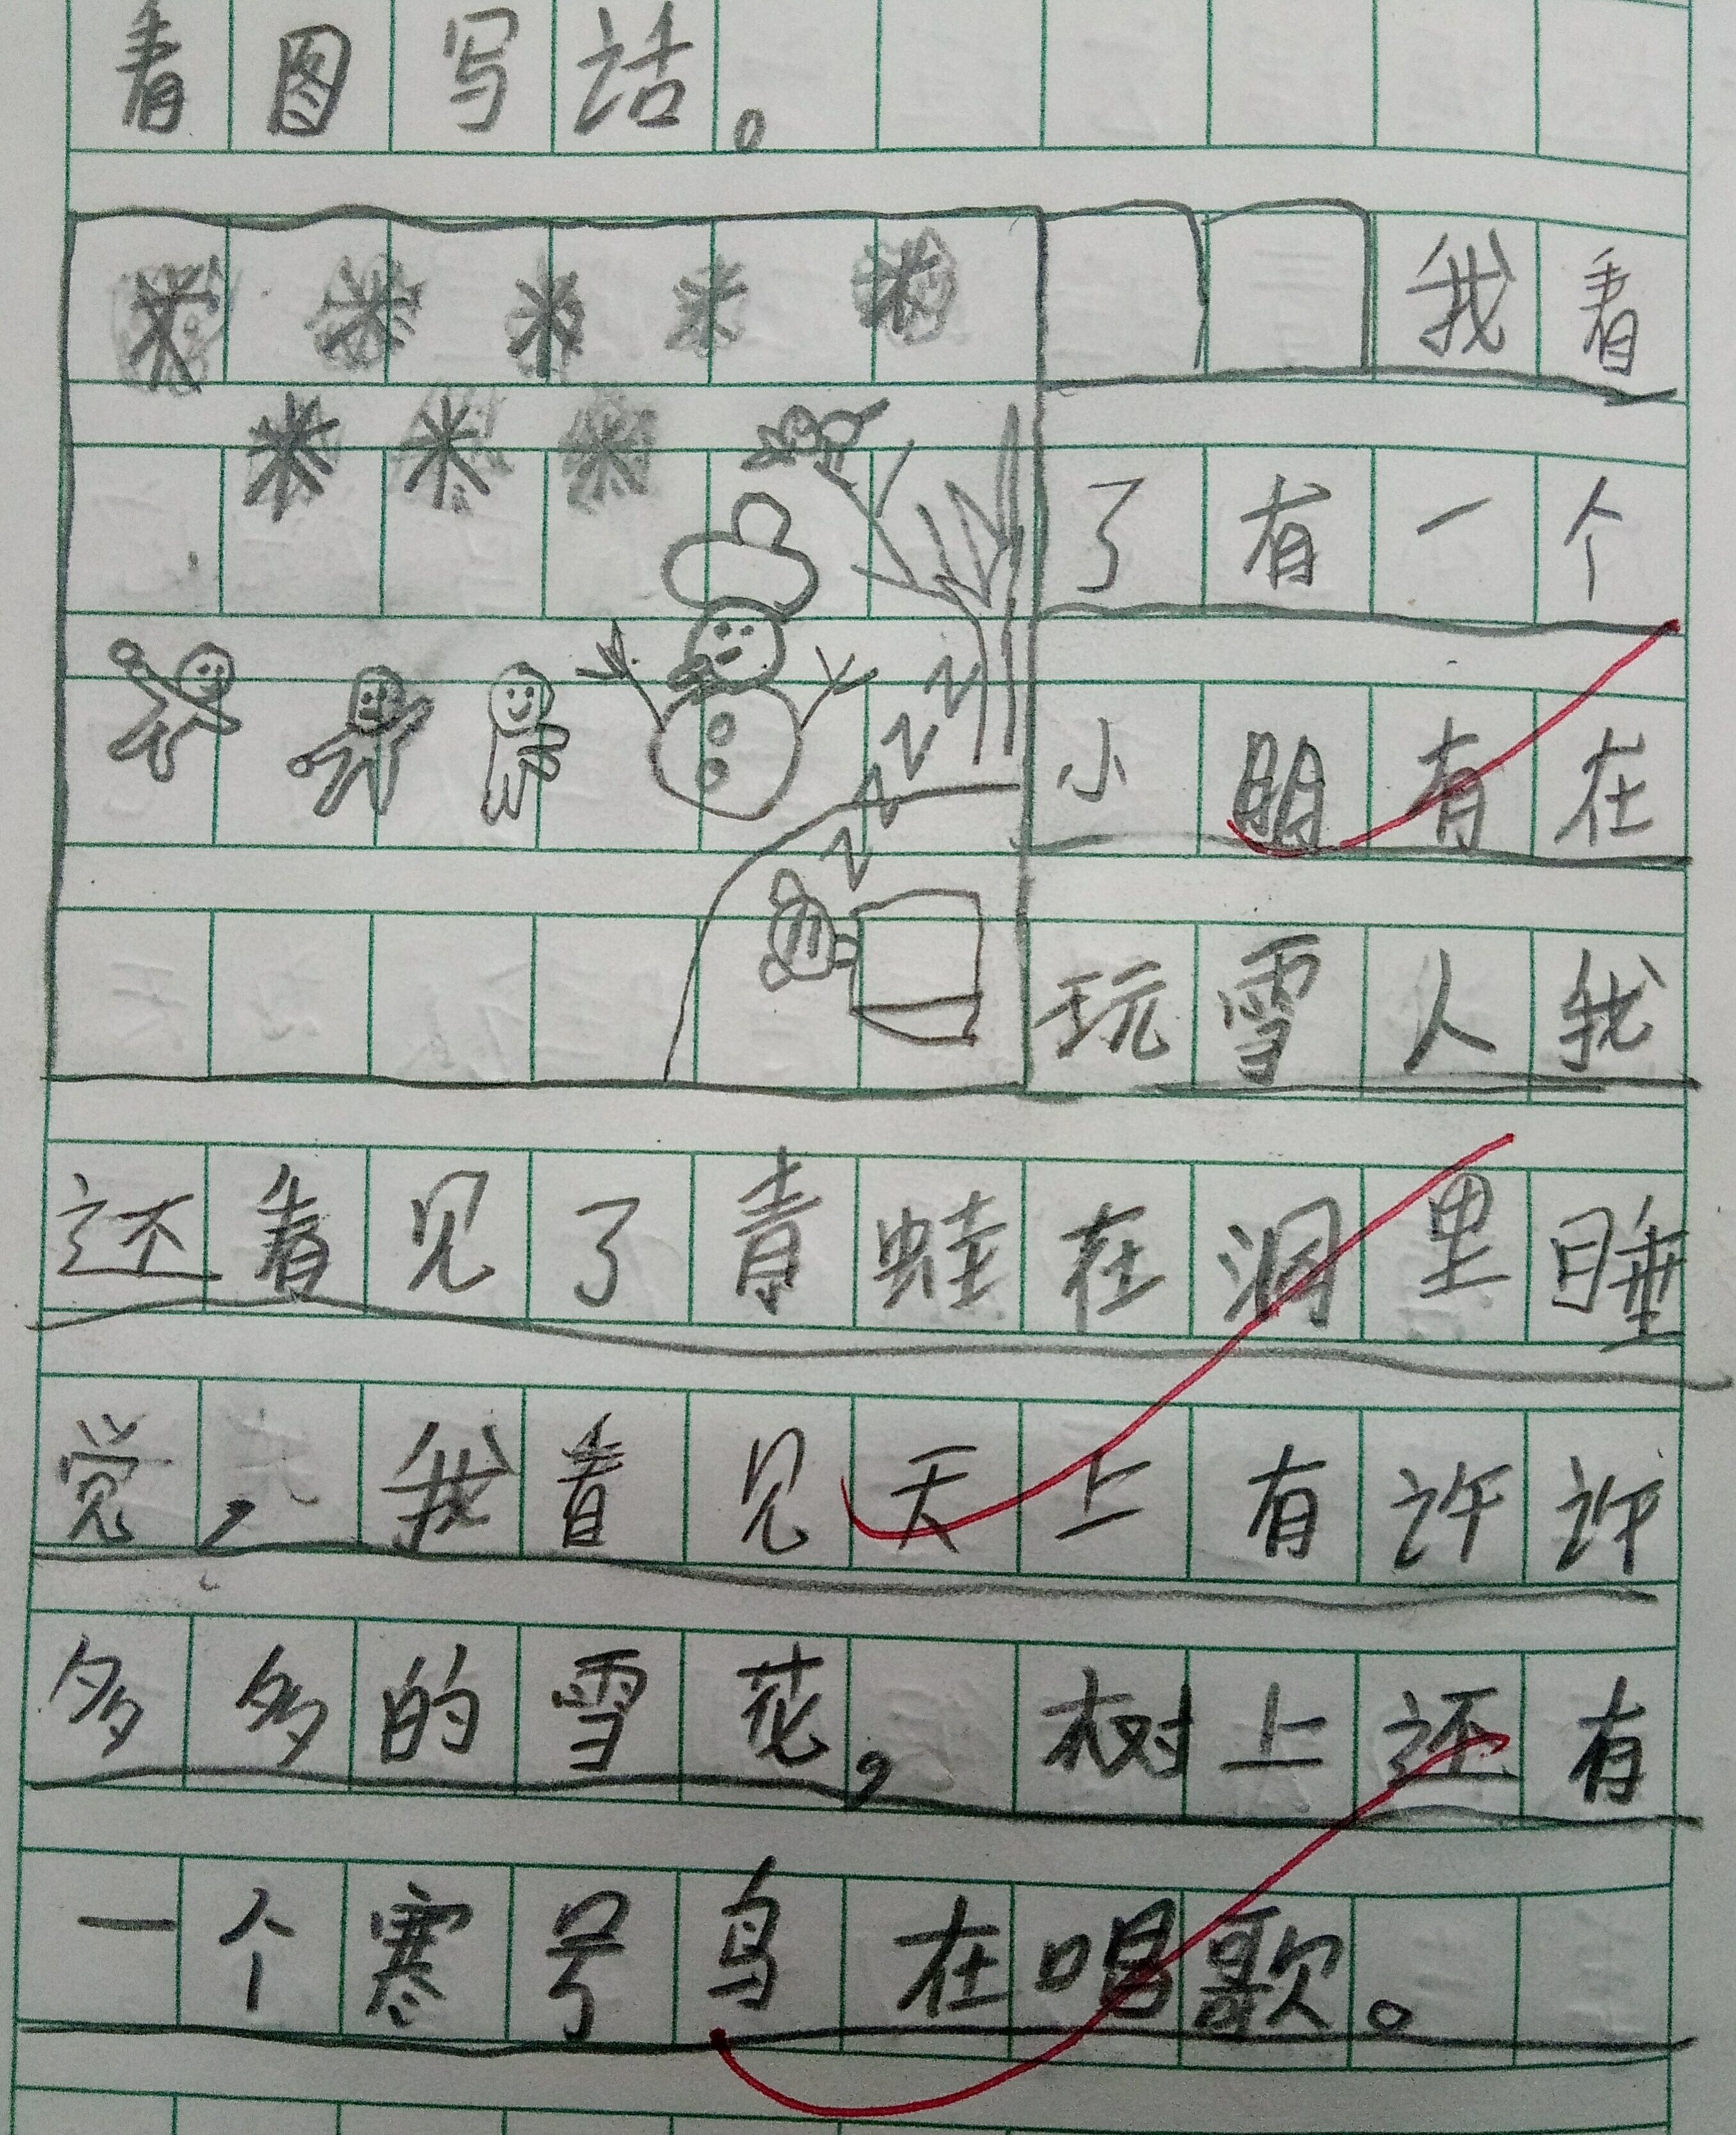 看图写话。
我看
了有一个
小明有在
玩雪人我
还看见了青蛙在洞里睡
觉,我看见天上有许许
多多的雪花,树上还有
一个寒号鸟在唱歌。